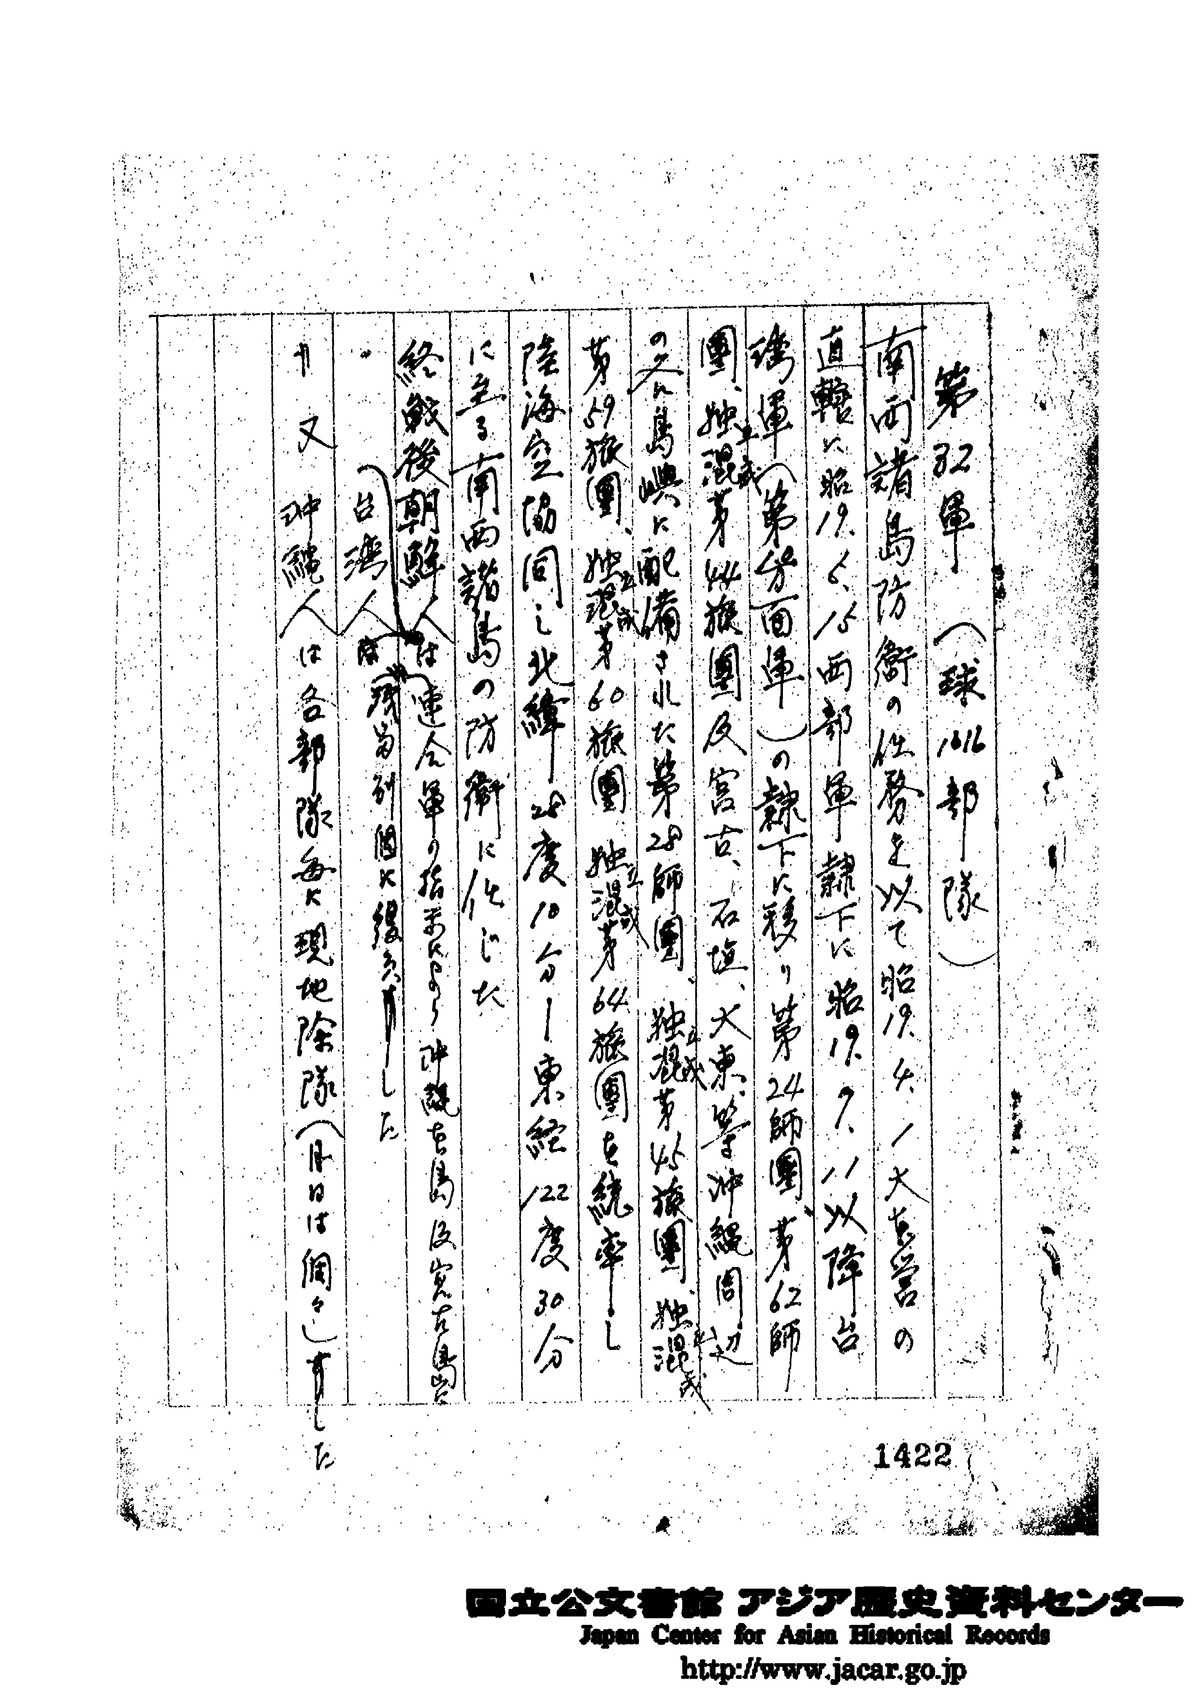 第32軍(球1616部隊)
南西諸島防衛の任務を以て昭19.4.1大本営の
直轄に昭19.5.15西部軍隷下に昭19.7.11以降台
湾軍(第10方面軍)の隷下に移り第24師團、第62師
團、独立混成第44旅團及宮古、石垣、大東、等沖縄周辺
の各島嶼に配備された第28師團、独立混成第45旅團、独立混成
第59旅團、独立混成第60旅團 独立混成第64旅團を統率し
陸海空協同し北緯28度10分ー東経122度30分
に至る南西諸島の防衛に任じた
終戦後朝鮮人は連合軍の指示により沖縄本島及宮古島に
〃 台湾人 残留別個に復員した
〃 又 沖縄人は各部隊毎に現地除隊(月日は個々)した
1422
国立公文書館 アジア歴史資料センター
Japan Center for Asian Historical Records
http://www.jacar.go.jp